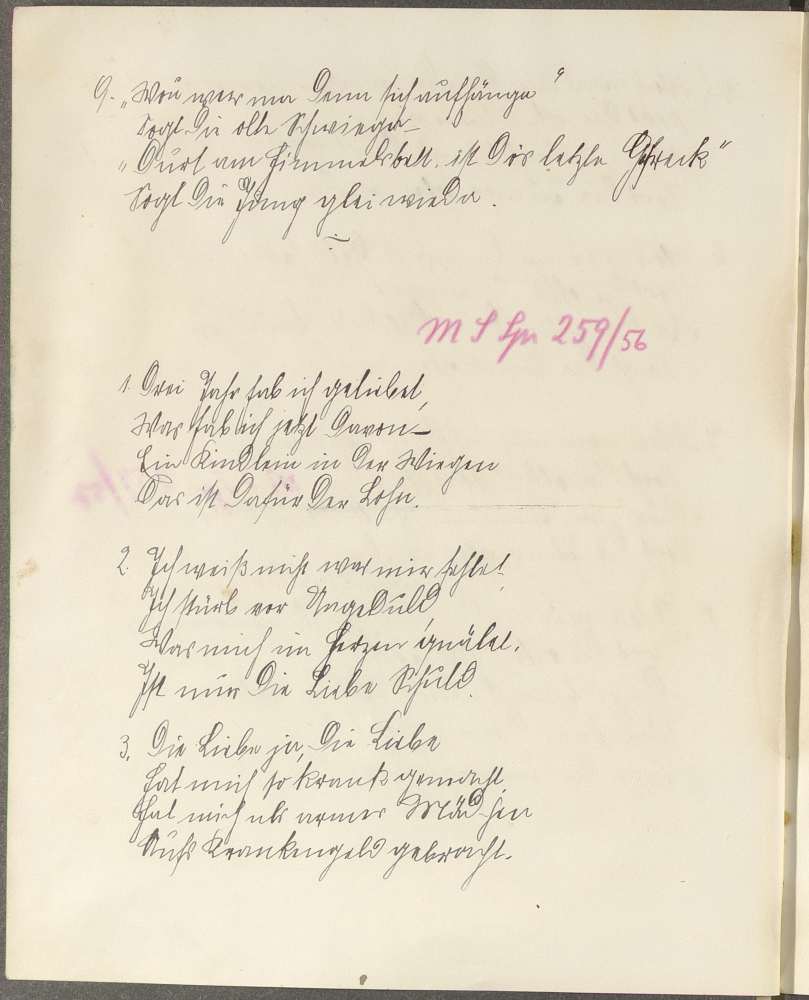 9. „Wou wer ma denn sich aufhänga“
Sogt die olte Schwiega –
„Durt am Himmelbett, ist dös letzte Gschreck“
Sogt die Jung glei wieda.
M S Spr 259/56
1. Drei Jahr hab ich geliebet,
Was hab ich jetzt davon –
Ein Kindlein in der Wiegen
Das ist dafür der Lohn.
2. Ich weiß nicht was mir fehlet
Ich stürb vor Ungeduld
Was mich im Herzen quälet.
Ist nur die Liebe Schuld.
3. Die Liebe ja, die Liebe
Hat mich so krank gemacht,
Hat mich als armes Mädchen
Aufs Krankengeld gebracht.